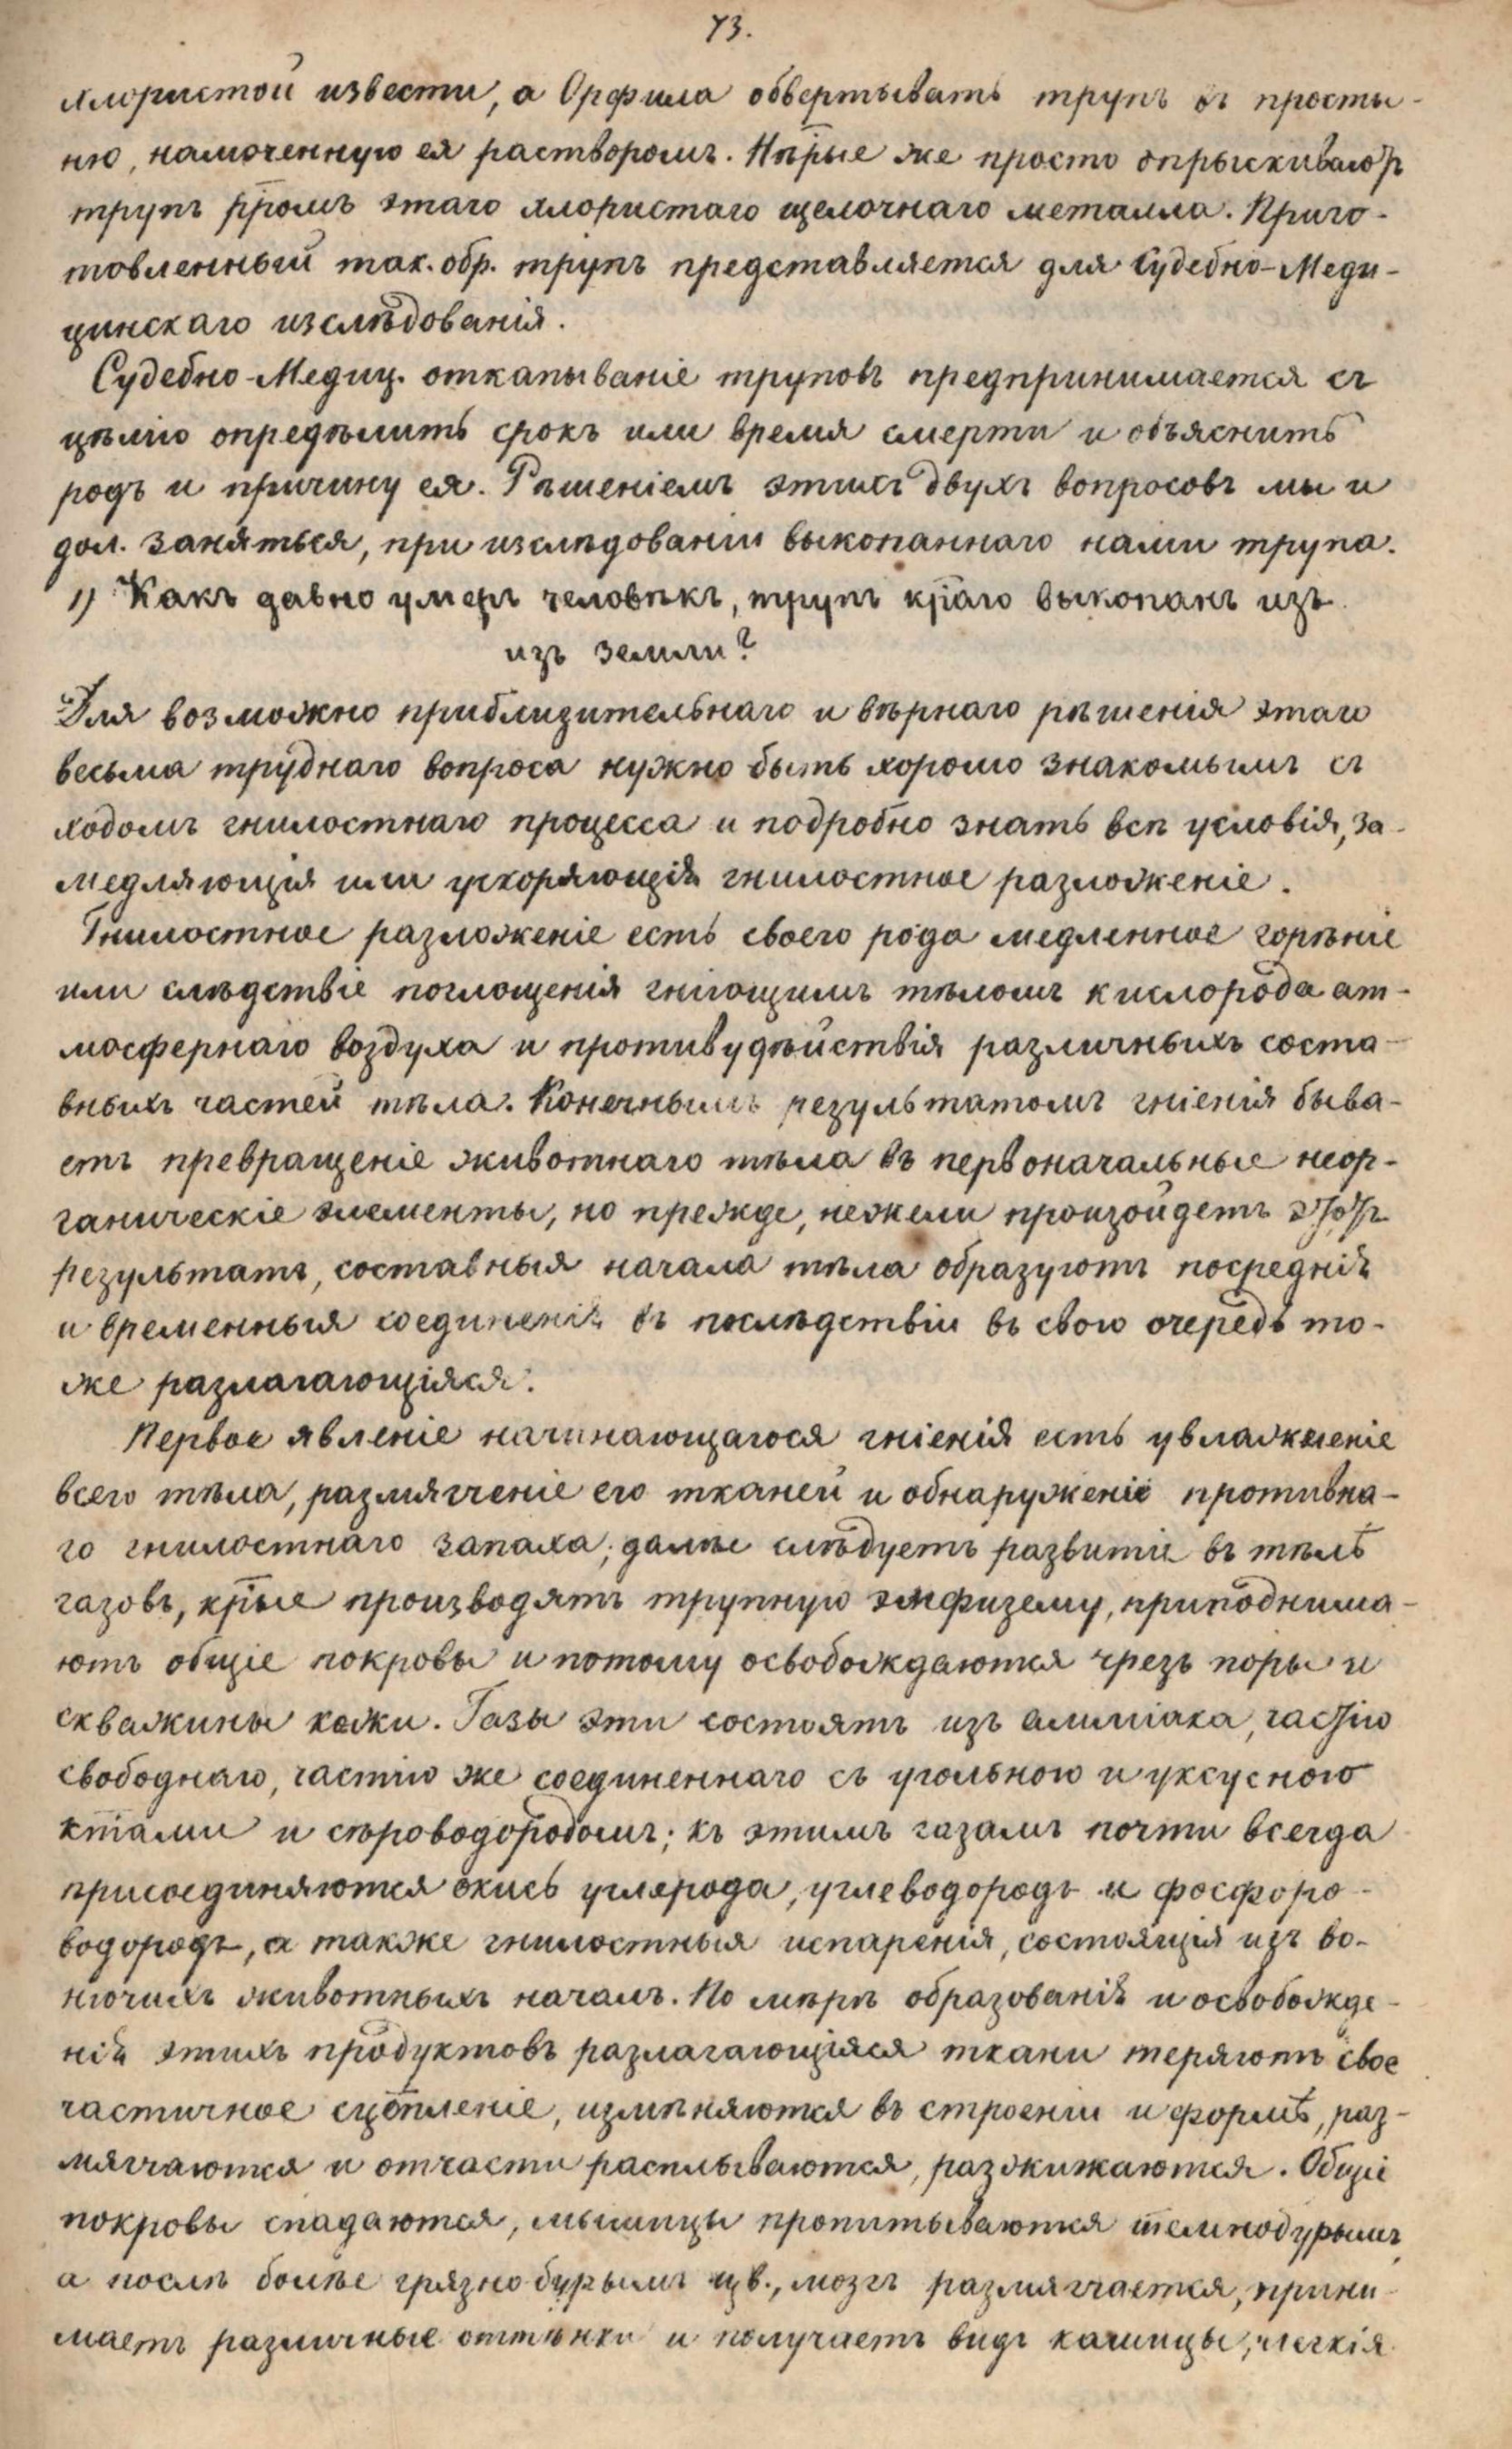 73.
хлористой извести, а Орфила обвертывать трупъ въ просты-
ню, намоченную ея растворомъ. Нѣ́рые же просто опрыскиваютъ
трупъ рромъ этаго хлористаго щелочнаго металла. Приго-
товленный так. обр. трупъ представляется для Судебно-Меди-
цинскаго изслѣдованія.
Судебно-Медиц. откапываніе труповъ предпринимается съ
цѣлію опредѣлить срокъ или время смерти и объяснить
родъ и причину ея. Рѣшеніемъ этихъ двухъ вопросовъ мы и
дол. заняться, при изслѣдованіи выкопаннаго нами трупа.
1) Какъ давно умеръ человѣкъ, трупъ кра́го выкопанъ изъ
изъ земли?
Для возможно приблизительнаго и вѣрнаго рѣшенія этаго
весьма труднаго вопроса нужно быть хорошо знакомымъ съ
ходомъ гнилостнаго процесса и подробно знать всѣ условія, за-
медляющія или ускоряющія гнилостное разложеніе.
Гнилостное разложеніе есть своего рода медленное горѣніе
или слѣдствіе поглощенія гніющимъ тѣломъ кислорода ат-
мосфернаго воздуха и противудѣйствія различныхъ соста-
вныхъ частей тѣла. Конечнымъ результатомъ гніенія быва-
етъ превращеніе животнаго тѣла въ первоначальные неор-
ганическіе элементы, но прежде, нежели произойдетъ этотъ
результатъ, составныя начала тѣла образуютъ посреднія
и временныя соединенія въ послѣдствіи въ свою очередь то-
же разлагающіяся.
Первое явленіе начинающагося гніенія есть увлаженіе
всего тѣла, размягченіе его тканей и обнаруженіе противна-
го гнилостнаго запаха; далѣе слѣдуетъ развитіе въ тѣлѣ
газовъ, крые производятъ трупную эмфизему, приподнима-
ютъ общіе покровы и потому освобождаются чрезъ поры и
скважины кожи. Газы эти состоятъ изъ амміака, частію
свободнаго, частію же соединеннаго съ угольною и уксусною
ктами и сѣроводородомъ; къ этимъ газамъ почти всегда
присоединяются окись углерода, углеводородъ и фосфоро-
водородъ, а также гнилостныя испаренія, состоящія изъ во-
нючихъ животныхъ началъ. По мѣрѣ образованія и освобожде-
нія этихъ продуктовъ разлагающіяся ткани теряютъ свое
частичное сцѣпленіе, измѣняются въ строеніи и формѣ, раз-
мягчаются и отчасти расплываются, разжижаются. Общіе
покровы спадаются, мышицы пропитываются темнобурымъ,
а послѣ болѣе грязнобурымъ цв., мозгъ размягчается, прини-
маетъ различные оттѣнки и получаетъ видъ кашицы, легкія